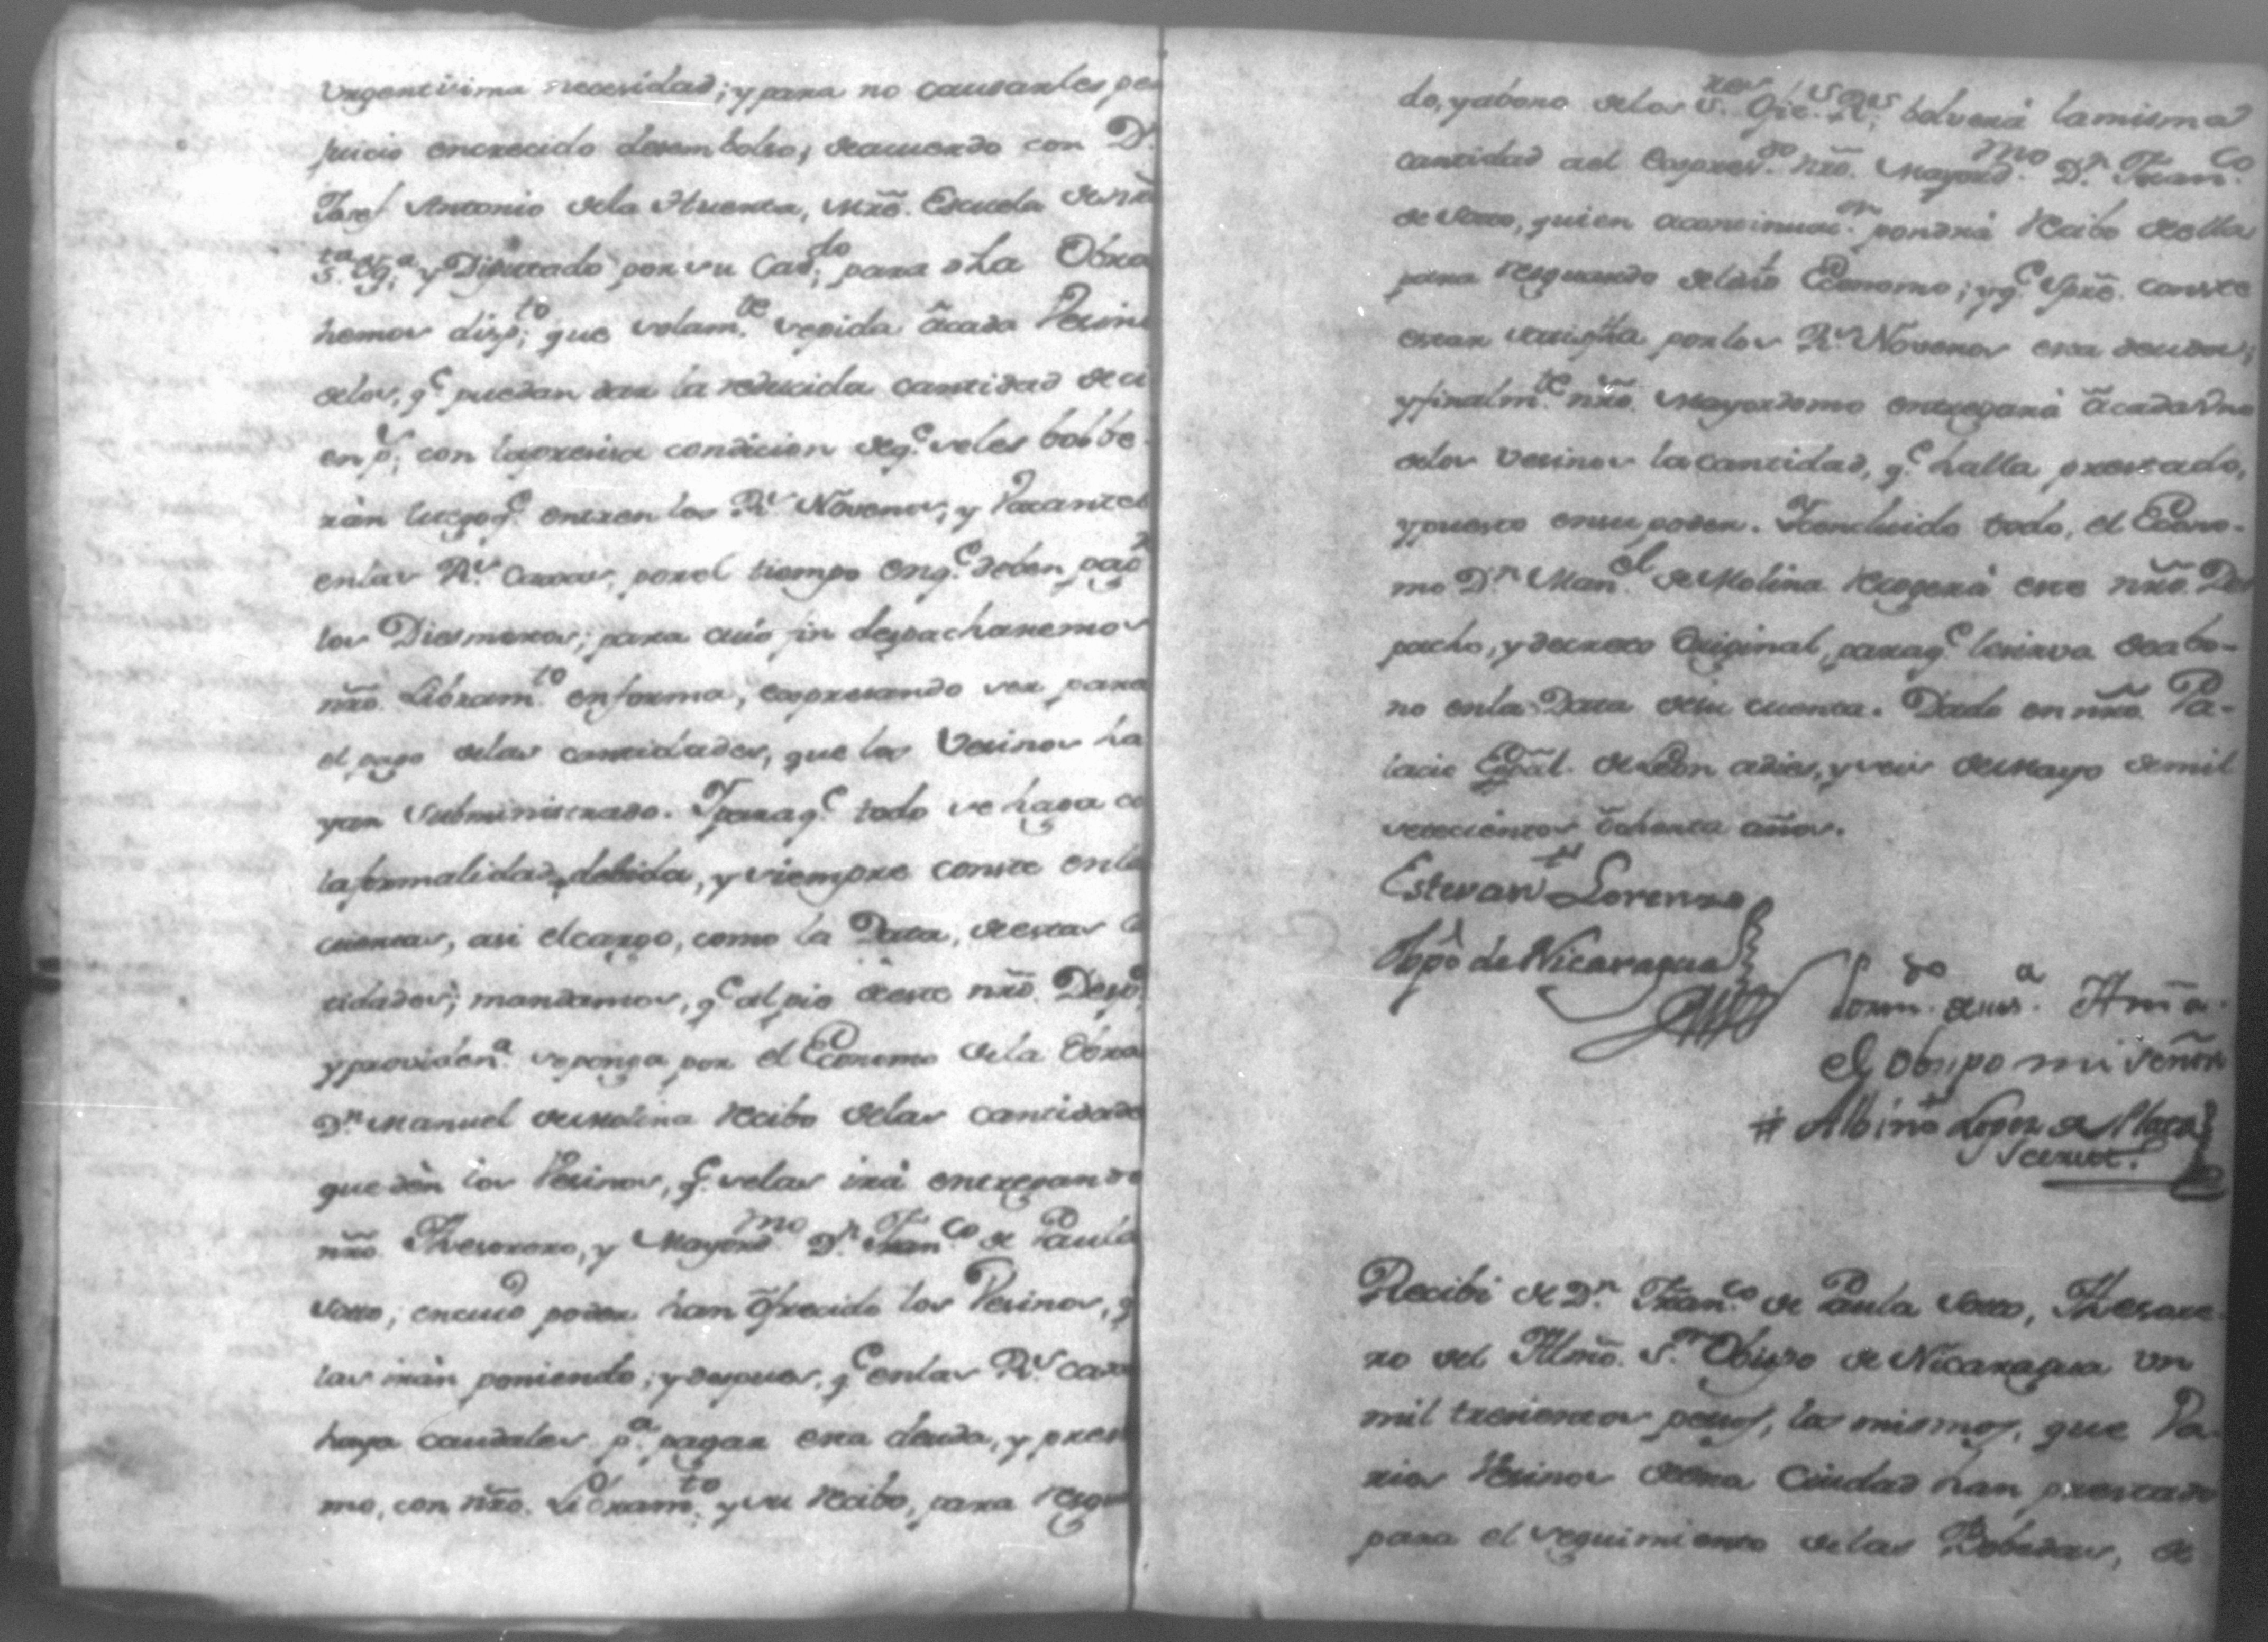 Urgentisima necesidad; y para no causarles per
juicio en crecido desembolso, de acuerdo con Dn.
Josef Antonio dela Huerta, Mrô. Escuela de nrâ
Sta. Yga. y Diputado por su Cavdo. para dha Obra
hemos dispto. que solamte. se pida â cada Vesino
delos, qe. puedan dar la reducida cantidad de ci
en ps. con la presisa condicion de qe. se les bolbe-
rán luego qe. entren los Rs. Novenos, y Vacantes
en las Rs. Caxas, por el tiempo en qe. deben pagr
los Diesmeros; para cuio fin despacharemos
nrô. Libramto. en forma, expresando ser para
el pago delas cantidades, que los Vesinos ha
yan Subministrado. Y para qe. todo se haga co
la formalidad debida, y siempre conste en las
cuentas, asi el cargo, como la Data, de estas c
tidades; mandamos, qe. al pie de este nrô. Despo.
y providena. se ponga por el Economo dela Obra
Dn. Manuel de Molina recibo delas cantidade
que dén los Vesinos, qe. se las irá entregando
nrô. Thesorero, y Mayordmo. Dn. Franco. de Paula
Soto, en cuio poder han ôfrecido los Vesinos, q
las irán poniendo; y despues, qe. en las Rs. caxa
haya caudales pa. pagar esta deuda, y prest
mo, con nrô. Libramto. y su recibo, para resgua
do, y abono delos Sres. Ofics. Rs. bolverá la misma
cantidad al Expresdo. nrô. Mayordmo. Dn. Franco.
de Soto, quien a continuaon. pondrá recibo de ella
para resguardo del dho Economo; y qe. sprê. conste
estar satisfha por los Rs. Novenos esta deuda;
y finalmte. nrô. Mayordomo entregará â cada Uno
delos Vesinos la cantidad, qe. halla prestado,
y puesto en su poder. Y concluido todo, el Econo-
mo Dn. Manel. de Molina recogerá este nrô. Des
pacho, y decreto Original, para qe. le sirva de abo-
no en la Data de su cuenta. Dado en nrô. Pa-
lacio Epâl. de Leon a dies, y seis de Mayo de mil
setecientos ôchenta años.
Estevan Lorenzo
Obpô de Nicaragua
Por mdo. de us. Yllmâ.
el Obispo mi Señor
# Albino Lopez de Plaza
Secrett.
Recibi de Dn. Franco. de Paula Soto, Thesore-
ro del Yllmô. Sr. Obispo de Nicaragua Un
mil trecientos pesos, los mismos, que Va-
rios Vesinos de esta Ciudad han prestado
para el seguimiento delas Bobedas, de